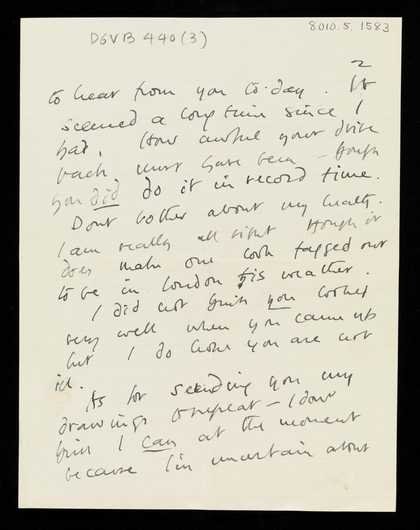 DGVB 440 (3)
8010.5.1583
2
to hear from you to-day. It
seemed a long time since I
had. How awful your drive
back must have been - though
you did do it in record time.
Dont bother about my health.
I am really all right though it
does make one look fagged out
to be in London this weather.
I did not think you looked
very well when you came up
but I do hope you are not
ill.
As for sending you my
drawings to repeat - I dont
think I can at the moment
because I'm uncertain about